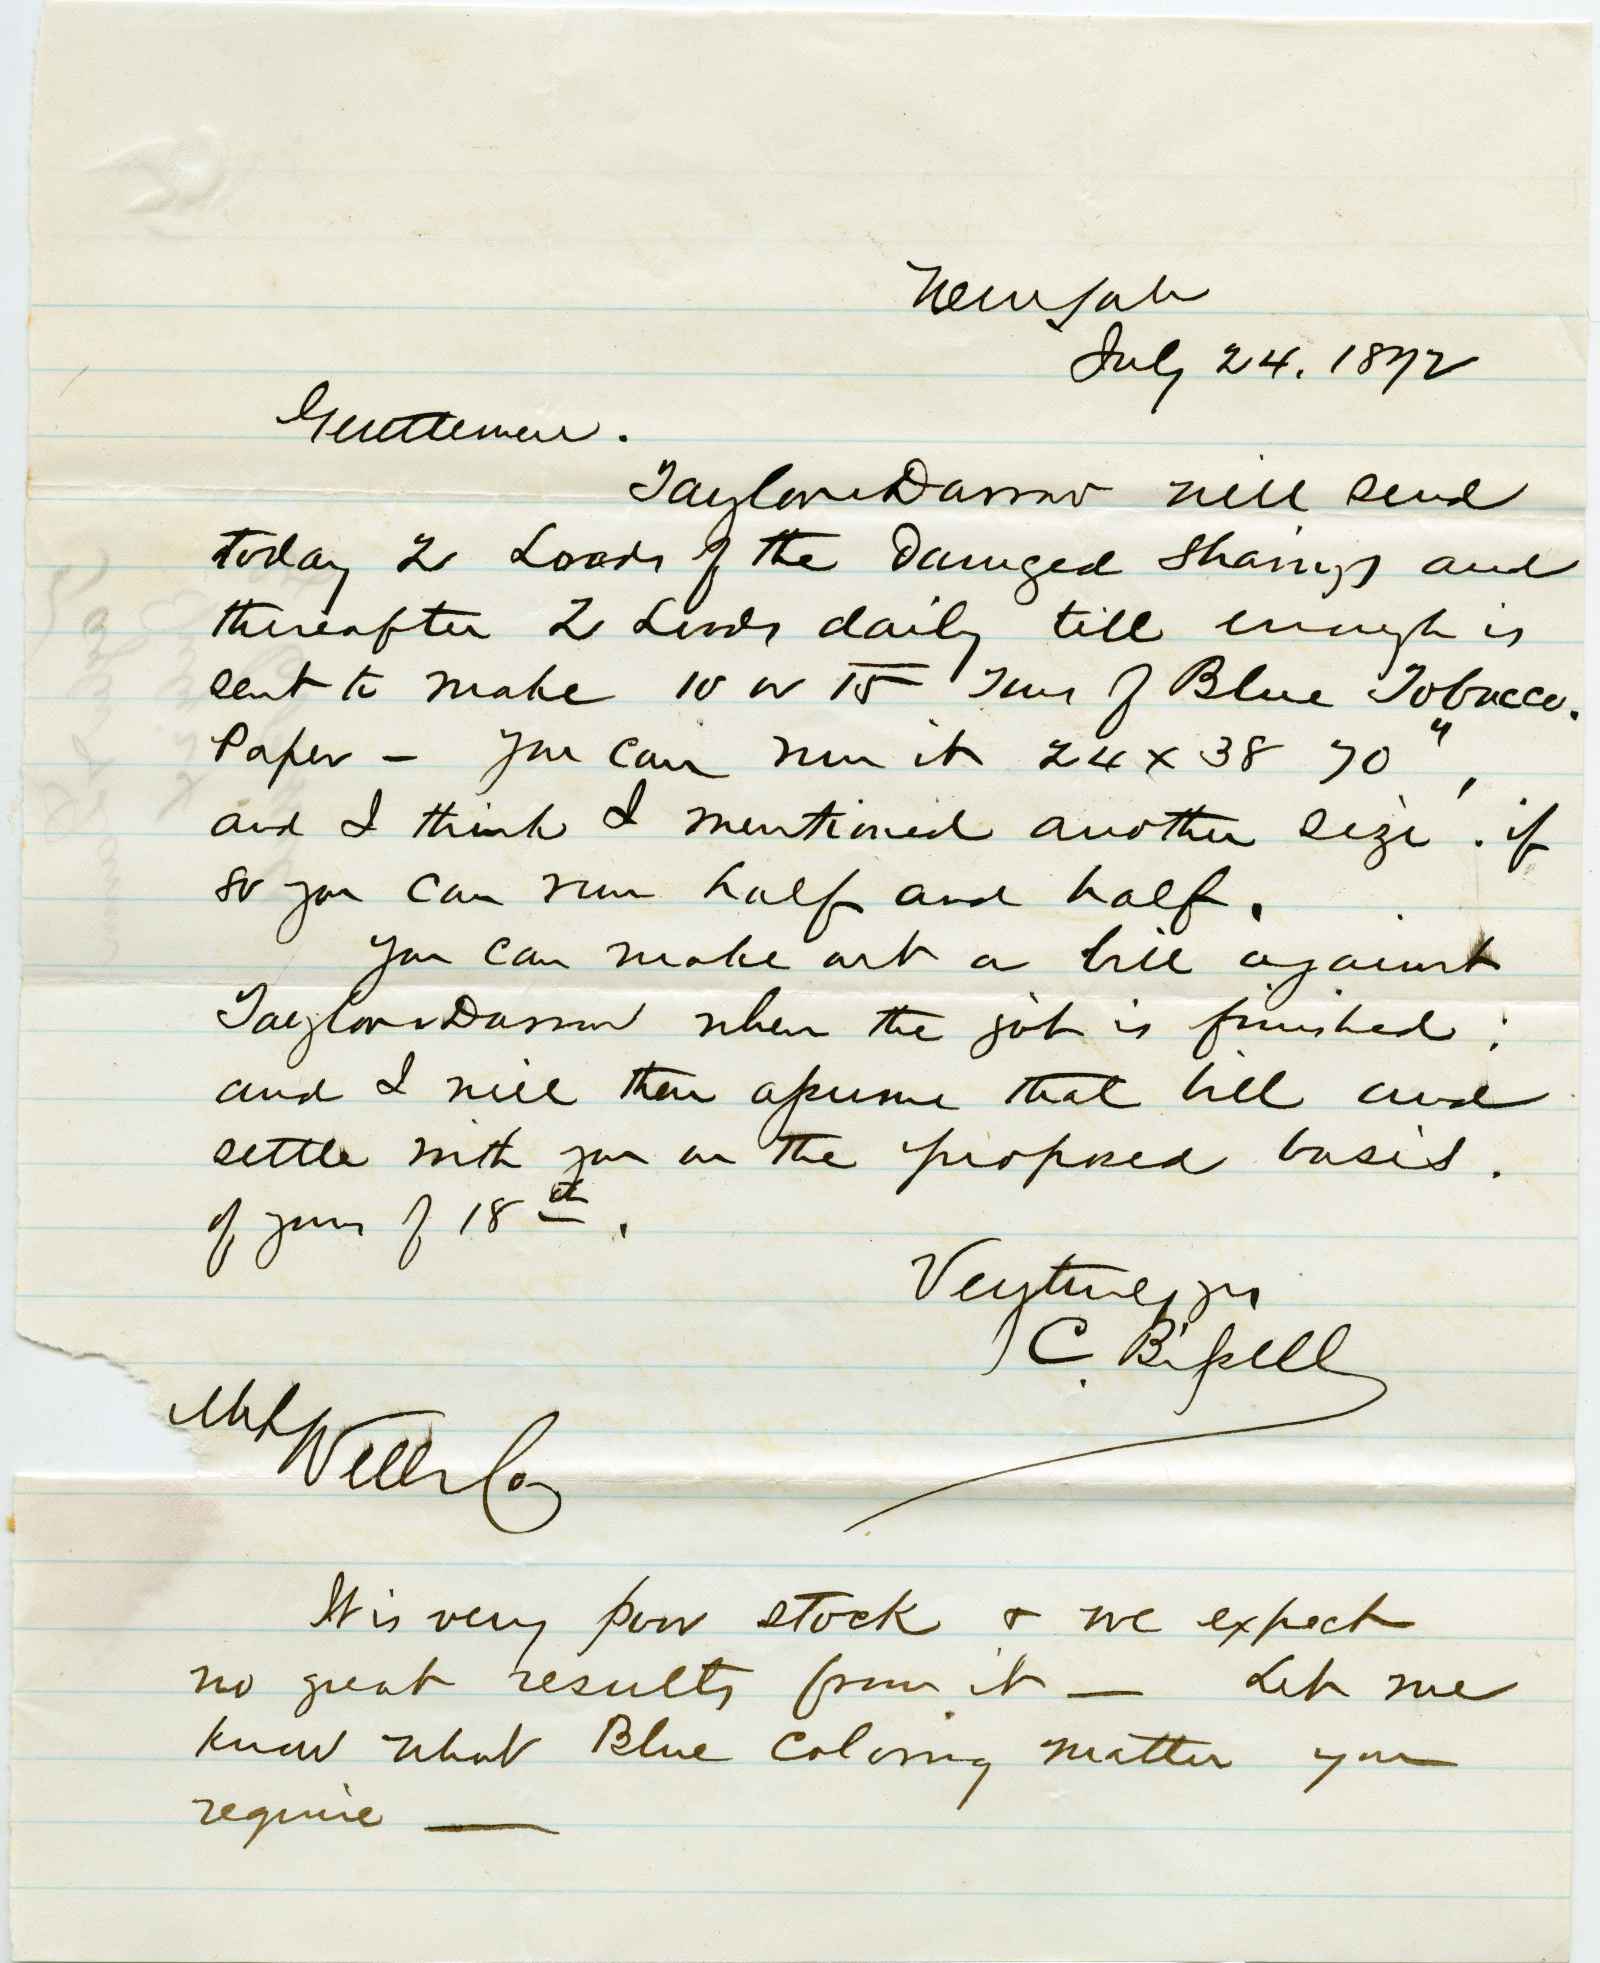 New York
July 24. 1872
Gentlemen.
Taylor & Darrow will send
today 2 Loads of the Damaged Shavings and
thereafter 2 Loads daily till enough is
sent to make 10 or 15 Tons of Blue Tobacco.
Paper – you can run it 24 x 38 70",
and I think I mentioned another size. if
so you can run half and half.
You can make out a bill against
Taylor & Darrow when the job is finished;
and I will then assume that bill and
settle with you on the proposed basis.
of yours of 18th.
Very truly yrs
C. Bissell
Wells Co
It is very poor stock & we expect
no great results from it — Let me
know what Blue Coloring matter you
require —